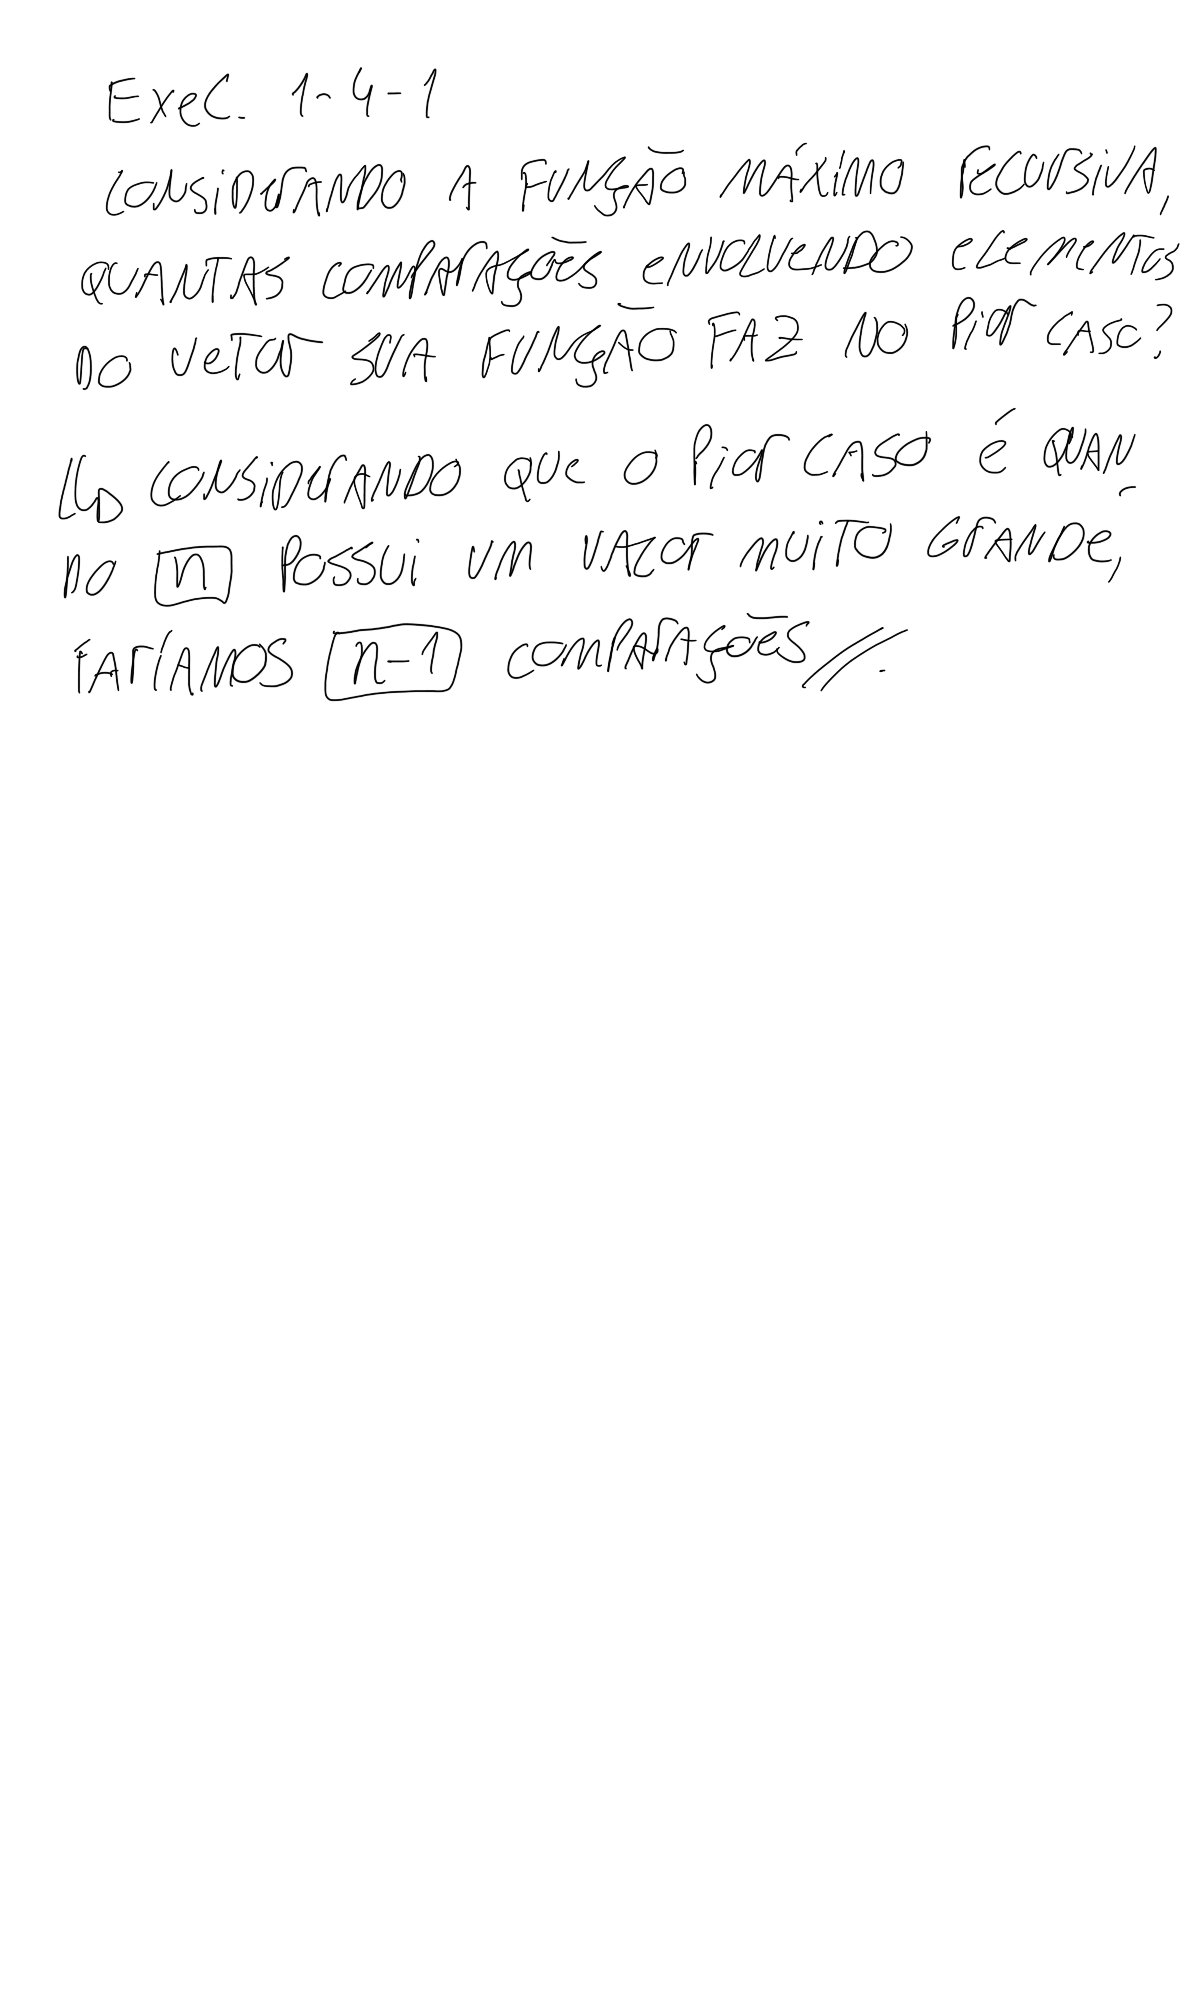 Exec. 1-4-1
CONSIDERANDO A FUNÇÃO MÁXIMO RECURSIVA,
QUANTAS COMPARAÇÕES ENVOLVENDO ELEMENTOS
DO VETOR SUA FUNÇÃO FAZ NO PIOR CASO?
CONSIDERANDO QUE O PIOR CASO É QUAN-
DO n POSSUI UM VALOR MUITO GRANDE,
FARÍAMOS n-1 COMPARAÇÕES//.